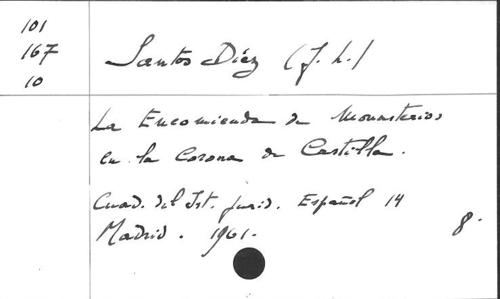 101
167
10
Santos Díez (J. L.)
La Encomienda de Monasterios
en la Corona de Castilla.
Cuad. del Ist. jurid. Español 14
Madrid. 1961.
8.